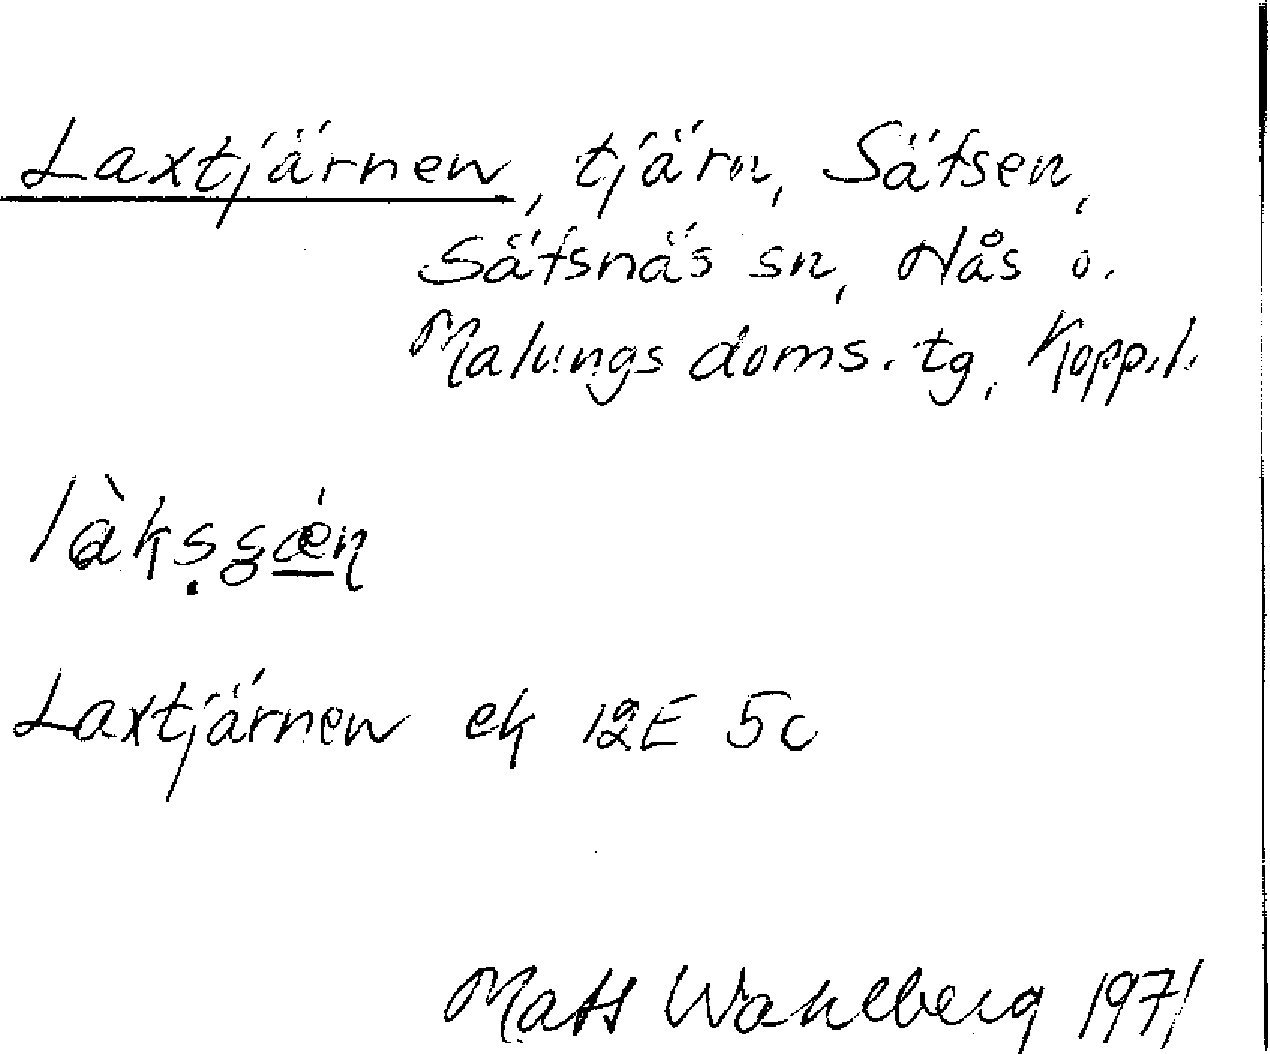 Laxtjärnen, tjärn, Säfsen,
Säfsnäs sn, Nås o.
Malungs doms. tg, Kopp.l.
Laxtjärnen ek 12E 5c
Mats Wahlberg 1971